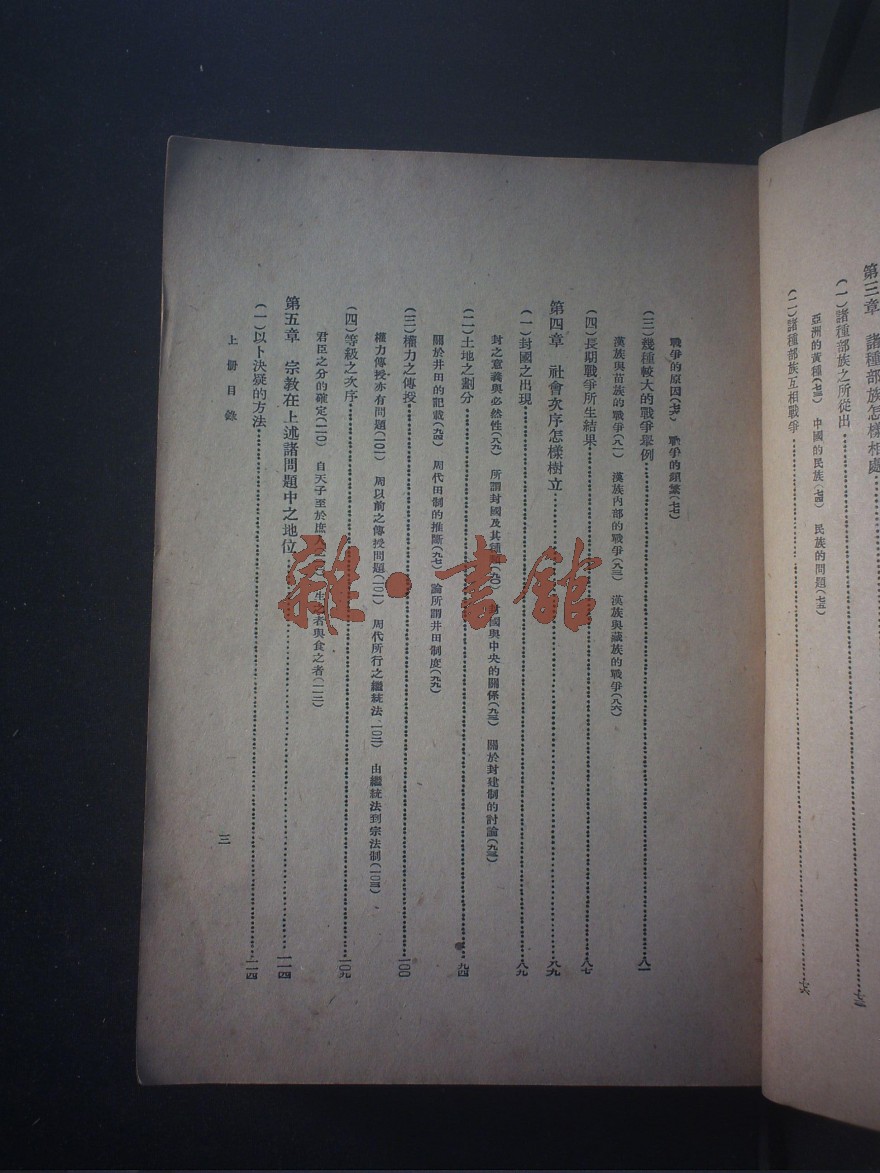 第三章 諸種部族怎樣相處
(一)諸種部族之所從出……七三
亞洲的黄種(七三) 中國的民族(七四) 民族的問題(七五)
(二)諸種部族互相戰爭……七六
戰爭的原因(七六) 戰爭的頻繁(七七)
(三)幾種較大的戰爭舉例……八一
漢族與苗族的戰爭(八一) 漢族內部的戰爭(八三) 漢族與藏族的戰爭(八六)
(四)長期戰爭所生結果……八七
第四章 社會次序怎樣樹立……八九
(一)封國之出現……八九
封之意義與必然性(八九) 所謂封國及其種 封國與中央的關係(九三) 關於封建制的討論(九三)
(二)土地之劃分……九四
關於井田的記載(九四) 周代田制的推斷(九七) 論所謂井田制度(九九)
(三)權力之傳授……一〇〇
權力傳授亦有問題(一〇一) 周以前之傳授問題(一〇一) 周代所行之繼統法(一〇二) 由繼統法到宗法制(一〇三)
(四)等級之次序……一〇九
君臣之分的確定(一一〇) 自天子至於庶 生之者與食之者(一一二)
第五章 宗教在上述諸問題中之地位……一一四
(一)以卜決疑的方法……一一四
上册目錄
三
雜·書館